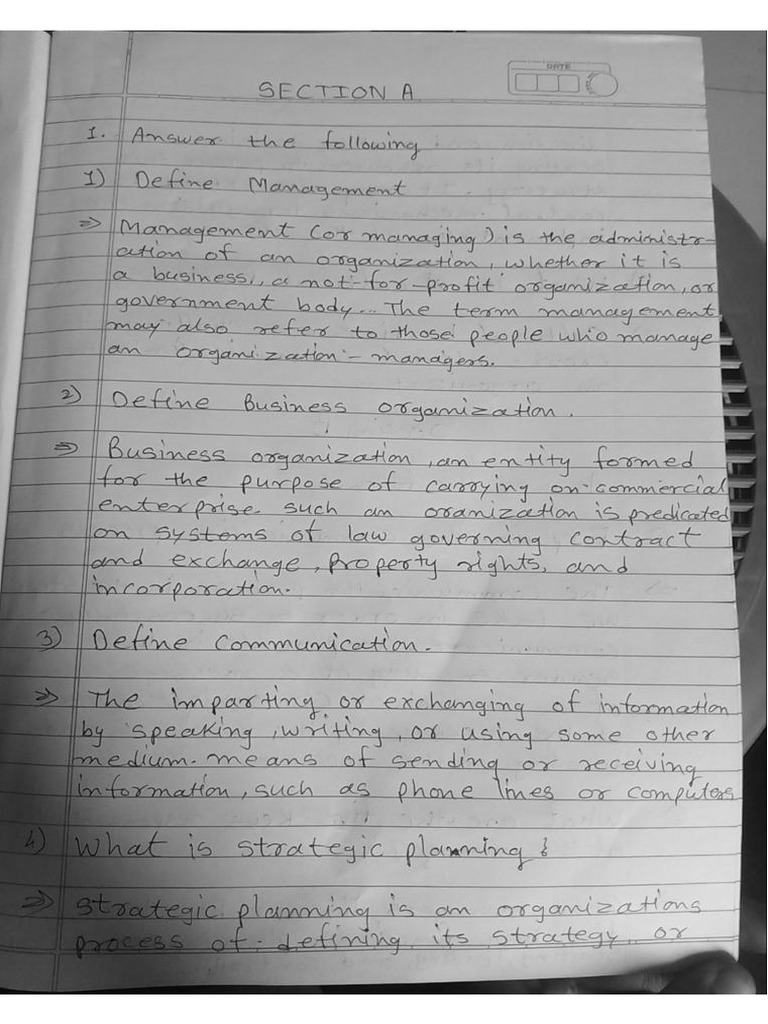 DATE
SECTION A
1. Answer the following
1) Define Management
⇒ Management (or managing) is the administr-
ation of an organization, whether it is
a business, a not-for-profit organization, or
government body. The term management
may also refer to those people who manage
an organization - managers.
2) Define Business organization.
⇒ Business organization, an entity formed
for the purpose of carrying on commercial
enterprise. such an oranization is predicated
on systems of law governing contract
and exchange, property rights, and
incorporation.
3) Define communication.
⇒ The imparting or exchanging of information
by speaking, writing, or using some other
medium. means of sending or receiving
information, such as phone lines or computers
4) What is strategic planning ?
⇒ strategic planning is an organizations
process of defining its strategy, or